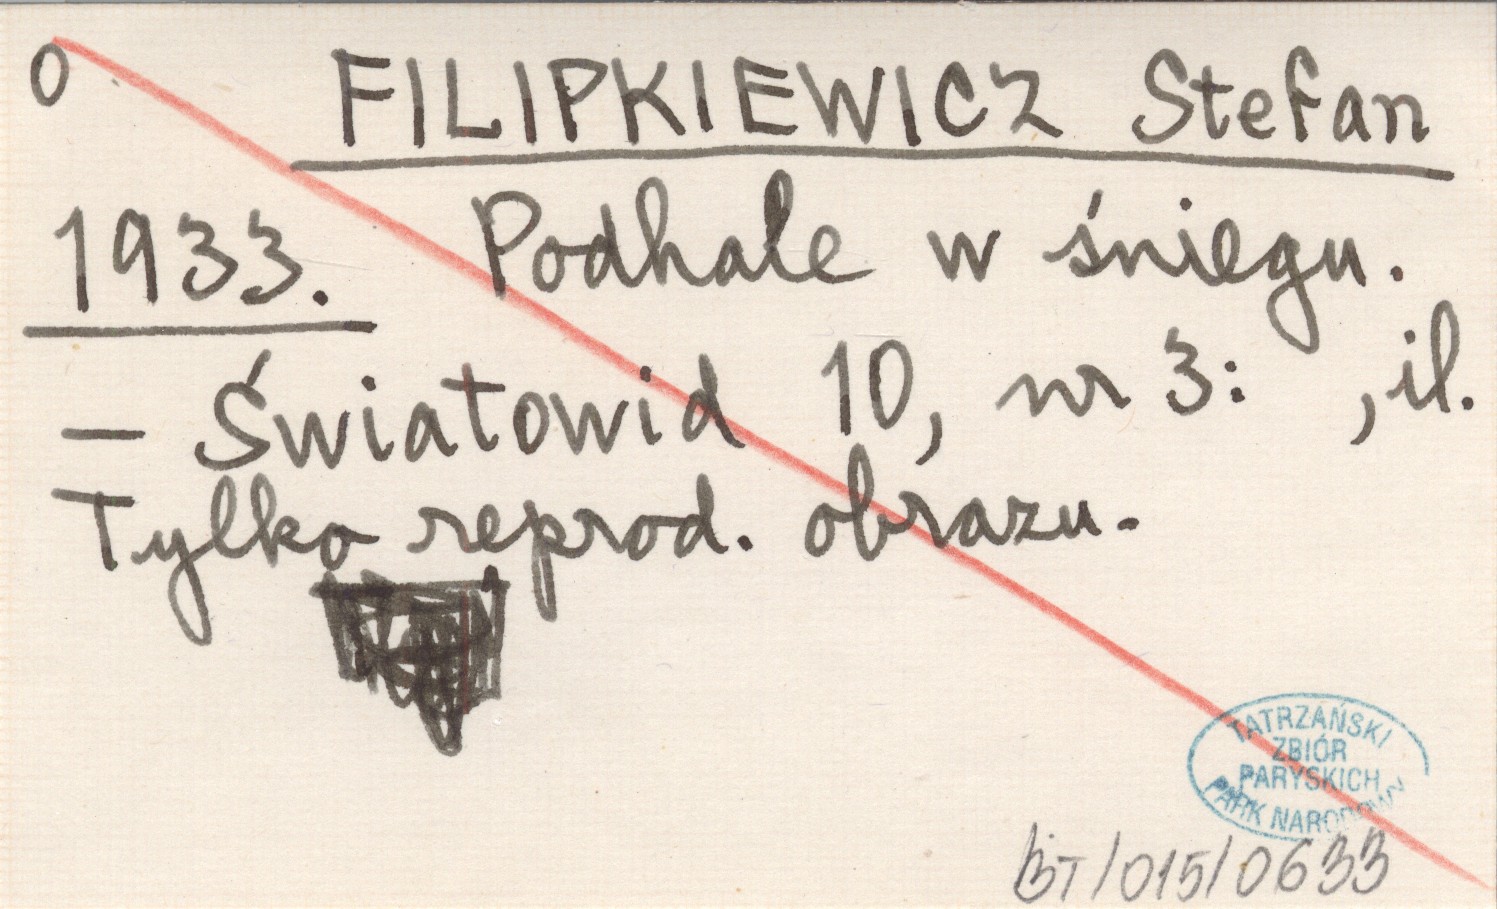 0 FILIPKIEWICZ Stefan
1933. Podhale w śniegu.
— Światowid 10, nr 3: , il.
Tylko reprod. obrazu.
TATRZAŃSKI
ZBIÓR
PARYSKICH
PARK NARODOWY
BT/015/0633